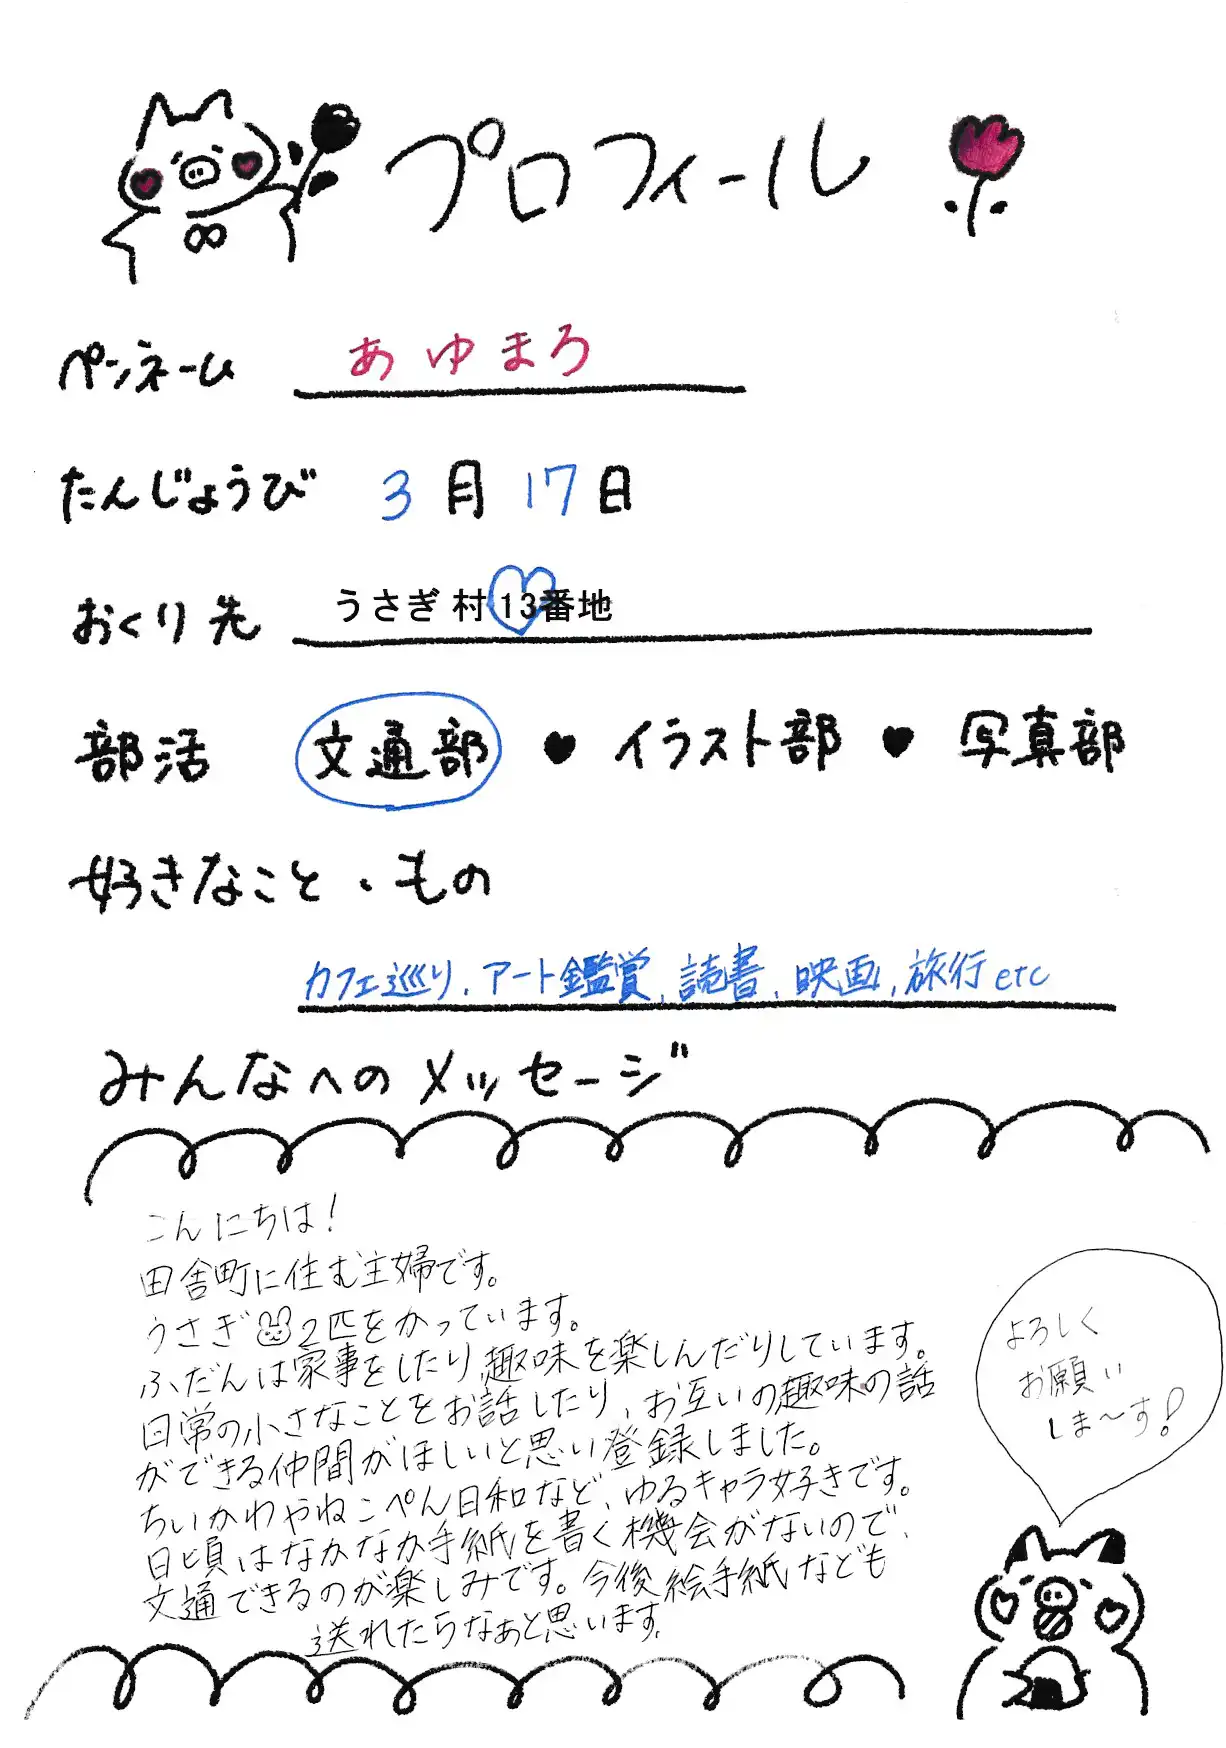 プロフィール
ペンネーム あゆまろ
たんじょうび 3月17日
おくり先 うさぎ村13番地
部活 文通部 ♥ イラスト部 ♥ 写真部
好きなこと・もの
カフェ巡り、アート鑑賞、読書、映画、旅行etc
みんなへのメッセージ
こんにちは!
田舎町に住む主婦です。
うさぎ2匹をかっています。
ふだんは家事をしたり趣味を楽しんだりしています。
日常の小さなことをお話したり、お互いの趣味の話
ができる仲間がほしいと思い登録しました。
ちいかわやねこぺん日和など、ゆるキャラ好きです。
日頃はなかなか手紙を書く機会がないので、
文通できるのが楽しみです。今後絵手紙なども
送れたらなぁと思います。
よろしく
お願い
しま〜す!